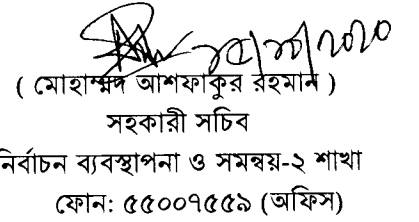 ( মোহাম্মদ আশফাকুর রহমান )
সহকারী সচিব
নির্বাচন ব্যবস্থাপনা ও সমন্বয়-২ শাখা
ফোন: ৫৫০০৭৫৫৯ (অফিস)